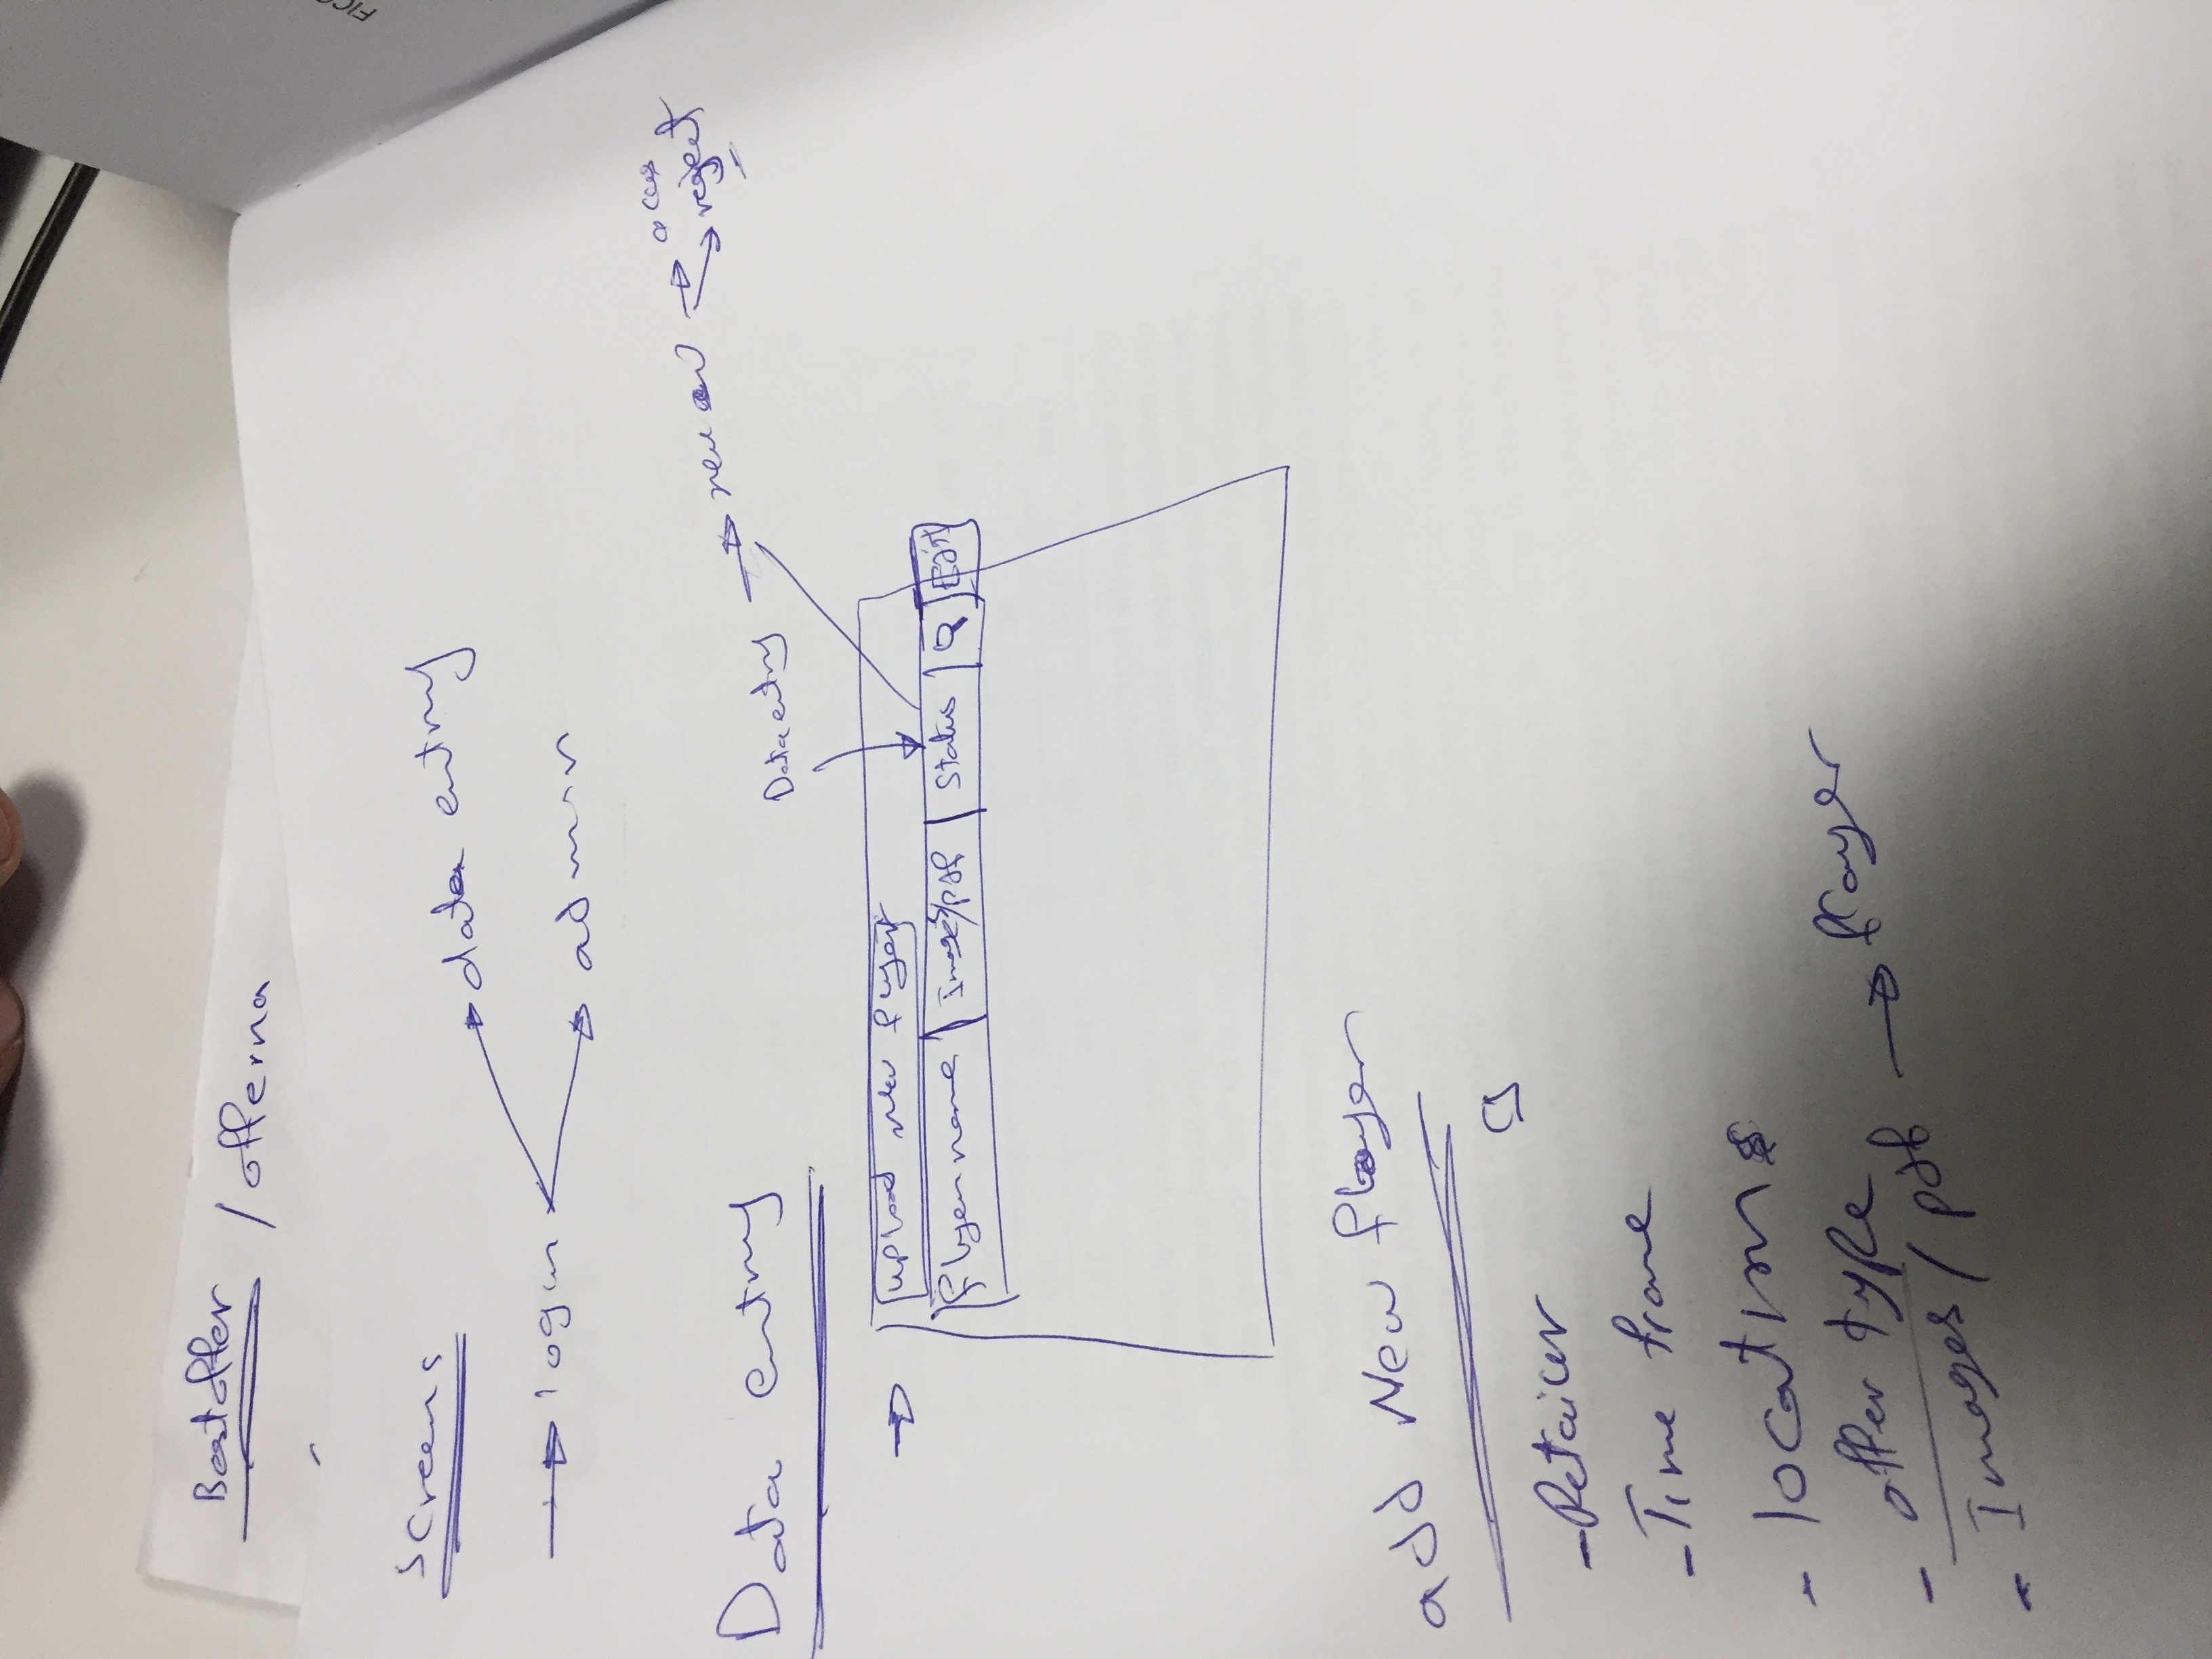 Bestoffer / offerna
Screens
login
data entry
admin
Data entry
Data entry
review
reject
upload new flyer
flyer name | Images/pdf | Status | Q | Edit
add New flayer
- Retailer
- Time frame
- locations
- offer type
- Images / pdf → flayer
FICO